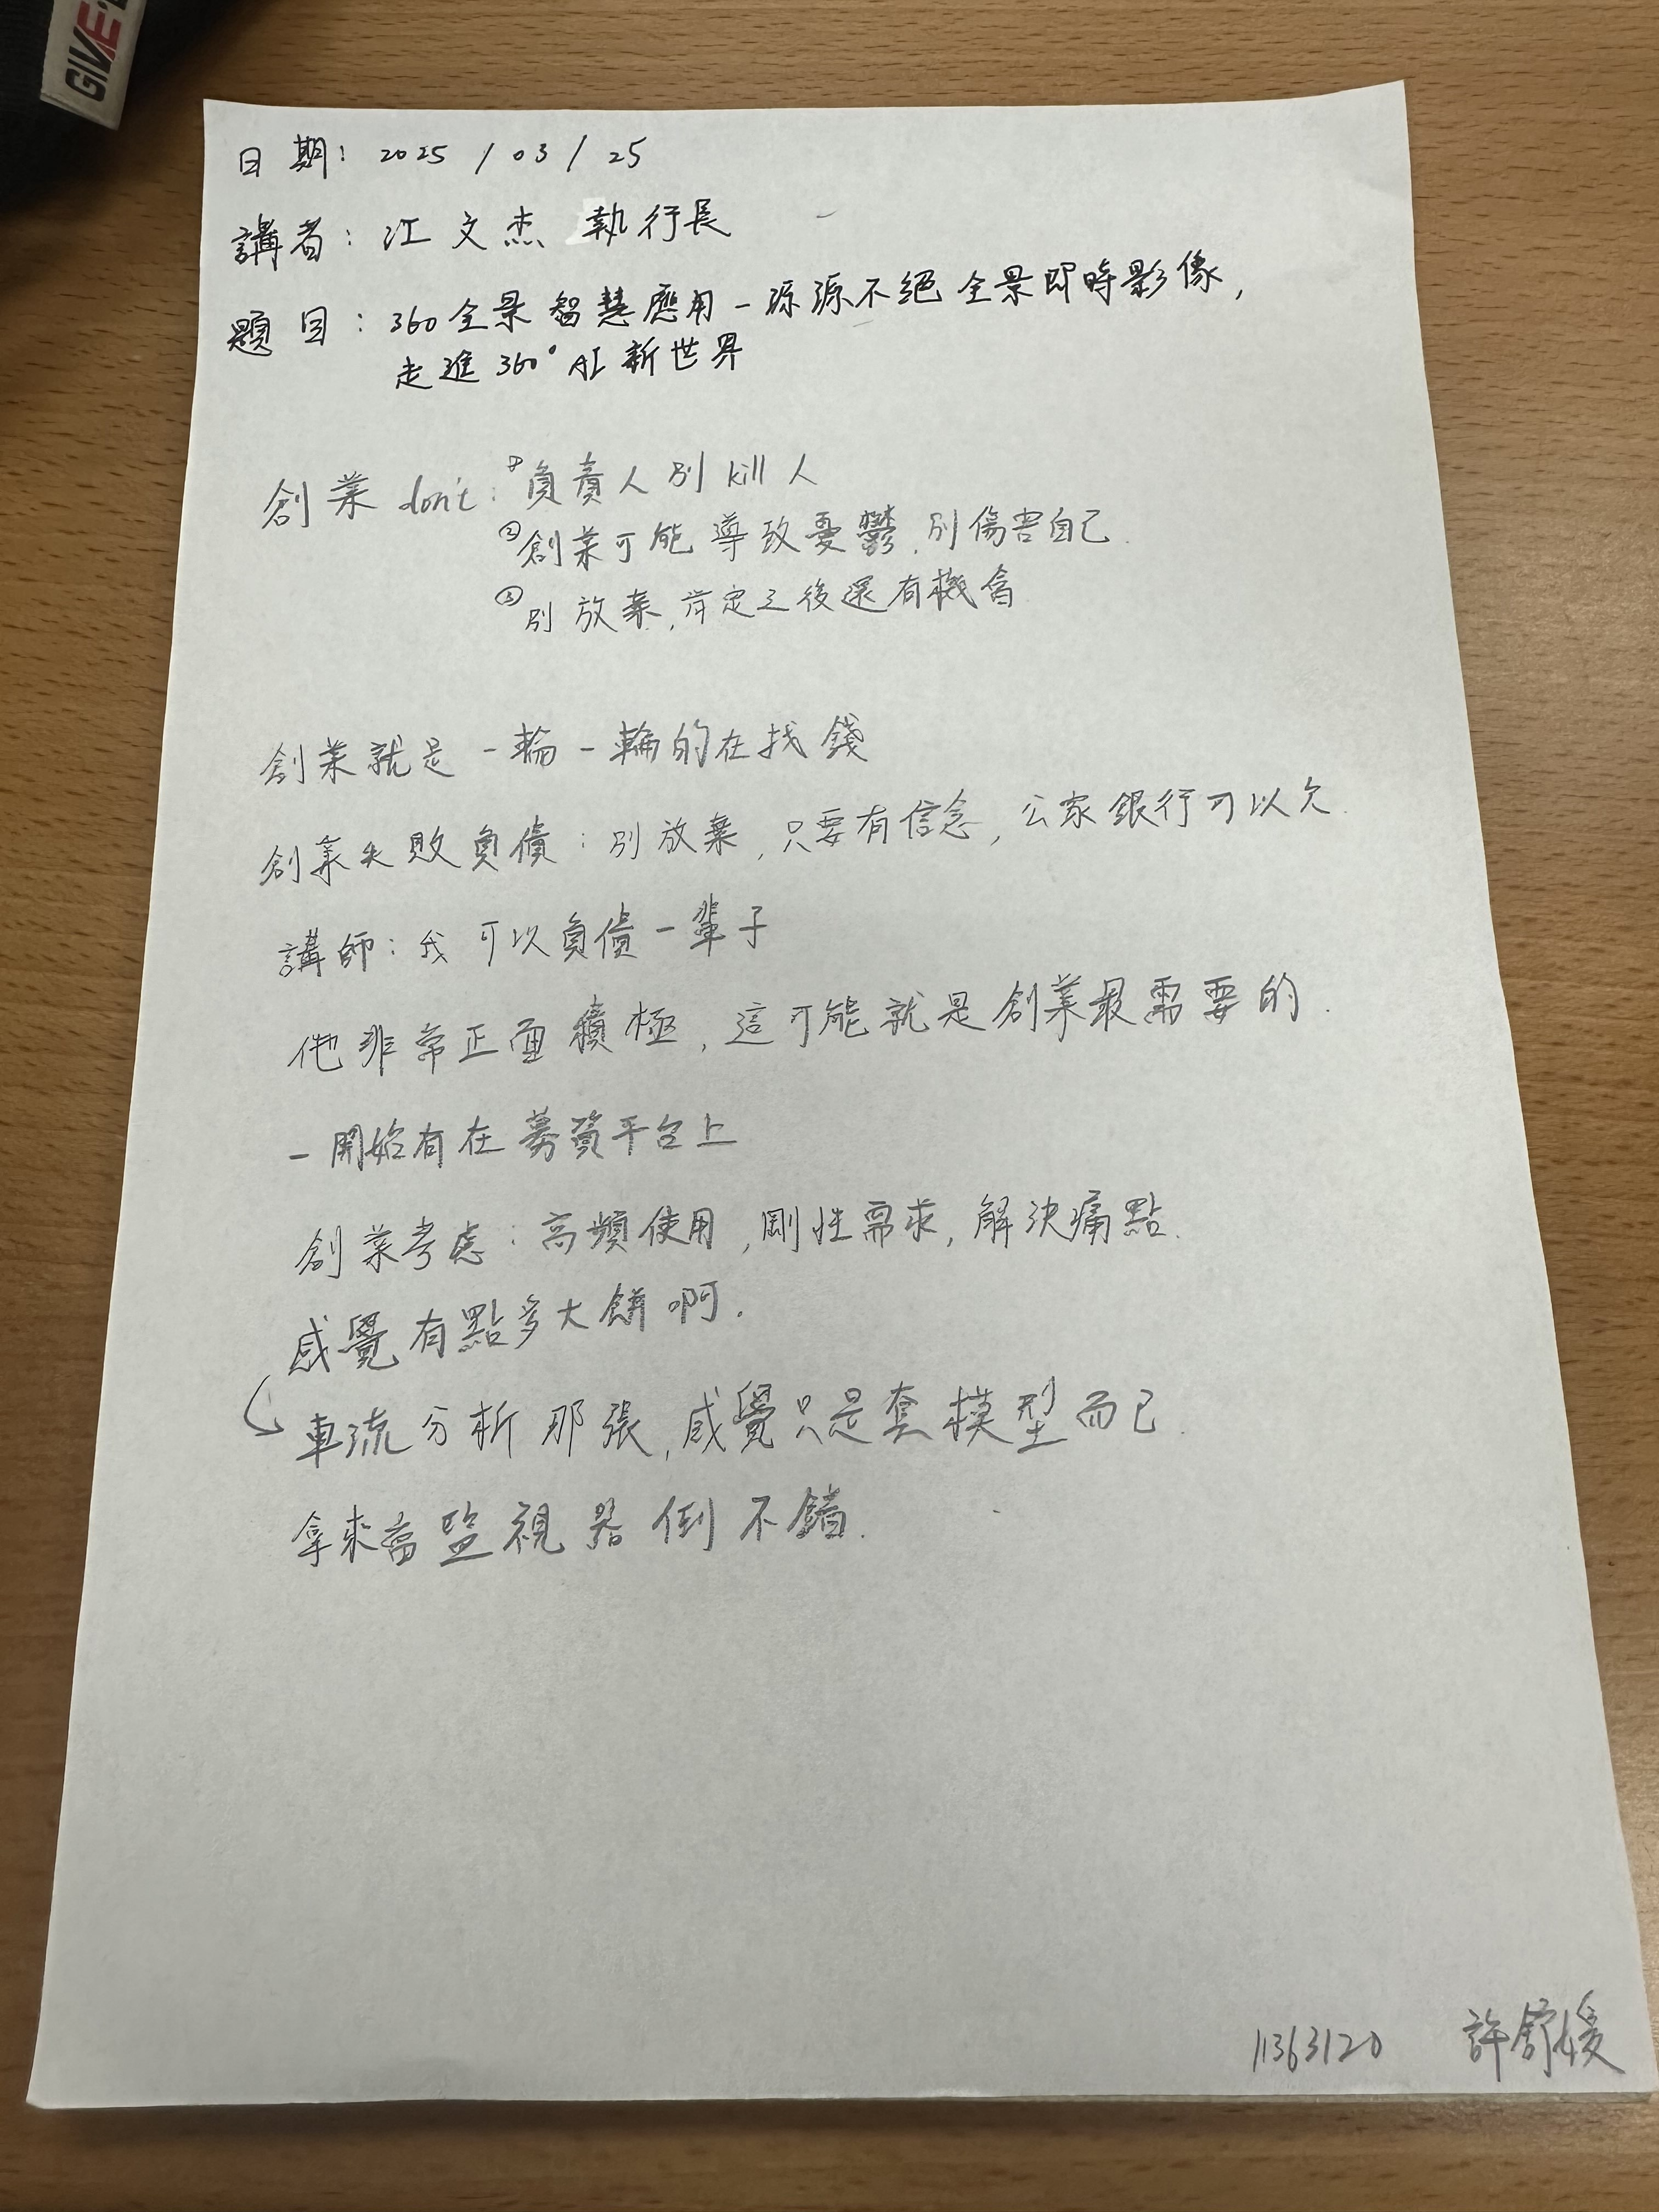 GIVE
日期: 2025 / 03 / 25
講者: 江文杰 執行長
題目: 360全景智慧應用-源源不絕全景即時影像,
走進360° AI新世界
創業 don't: 負責人別kill人
②創業可能導致憂鬱,別傷害自己.
③別放棄,肯定之後還有機會
創業就是一輪一輪的在找錢
創業失敗負債:別放棄,只要有信念,公家銀行可以欠.
講師:我可以負債一輩子
他非常正面積極,這可能就是創業最需要的.
一開始有在募資平台上
創業考慮:高頻使用,剛性需求,解決痛點.
感覺有點多大餅啊.
車流分析那張,感覺只是套模型而已.
拿來當監視器倒不錯.
11363120 許舒媛